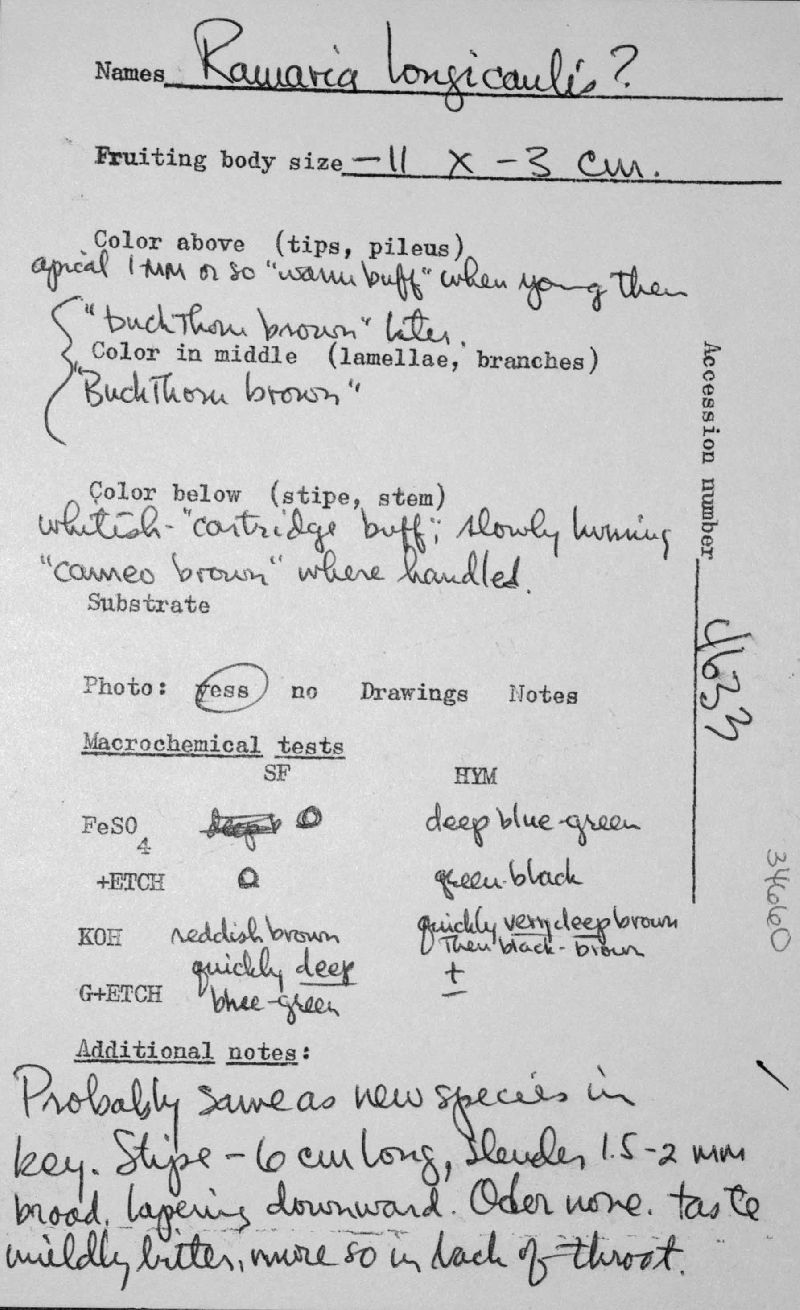 Names Ramaria longicaulis?
Fruiting body size -11 x -3 cm.
Color above (tips, pileus)
apical 1 mm or so "warm buff" when young then
"buckthorn brown" later.
Color in middle (lamellae, branches)
"Buckthorn brown"
Color below (stipe, stem)
whitish-"cartridge buff"; slowly turning
"cameo brown" where handled.
Substrate
Photo: yess no Drawings Notes
Macrochemical tests
SF HYM
FeSO4 0 deep blue-green
+ETCH 0 green-black
KOH reddish brown quickly very deep brown
then black-brown
G+ETCH quickly deep
blue-green ±
Additional notes:
Probably same as new species in
key. Stipe - 6 cm long, slender, 1.5-2 mm
broad, tapering downward. Oder none. taste
mildly bitter, more so in back of throat.
Accession number 4633
34660